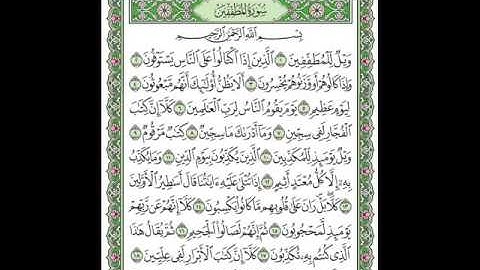 سُورَةُ المُطَفِّفِينَ
بِسْمِ اللَّهِ الرَّحْمَٰنِ الرَّحِيمِ
وَيْلٌ لِّلْمُطَفِّفِينَ ١ الَّذِينَ إِذَا اكْتَالُوا عَلَى النَّاسِ يَسْتَوْفُونَ ٢
وَإِذَا كَالُوهُمْ أَو وَّزَنُوهُمْ يُخْسِرُونَ ٣ أَلَا يَظُنُّ أُولَٰئِكَ أَنَّهُم مَّبْعُوثُونَ ٤
لِيَوْمٍ عَظِيمٍ ٥ يَوْمَ يَقُومُ النَّاسُ لِرَبِّ الْعَالَمِينَ ٦ كَلَّا إِنَّ كِتَابَ
الْفُجَّارِ لَفِي سِجِّينٍ ٧ وَمَا أَدْرَاكَ مَا سِجِّينٌ ٨ كِتَابٌ مَّرْقُومٌ ٩
وَيْلٌ يَوْمَئِذٍ لِّلْمُكَذِّبِينَ ١٠ الَّذِينَ يُكَذِّبُونَ بِيَوْمِ الدِّينِ ١١ وَمَا يُكَذِّبُ
بِهِ إِلَّا كُلُّ مُعْتَدٍ أَثِيمٍ ١٢ إِذَا تُتْلَىٰ عَلَيْهِ آيَاتُنَا قَالَ أَسَاطِيرُ الْأَوَّلِينَ
١٣ كَلَّا بَلْ رَانَ عَلَىٰ قُلُوبِهِم مَّا كَانُوا يَكْسِبُونَ ١٤ كَلَّا إِنَّهُمْ عَن رَّبِّهِمْ
يَوْمَئِذٍ لَّمَحْجُوبُونَ ١٥ ثُمَّ إِنَّهُمْ لَصَالُوا الْجَحِيمِ ١٦ ثُمَّ يُقَالُ هَٰذَا
الَّذِي كُنتُم بِهِ تُكَذِّبُونَ ١٧ كَلَّا إِنَّ كِتَابَ الْأَبْرَارِ لَفِي عِلِّيِّينَ ١٨